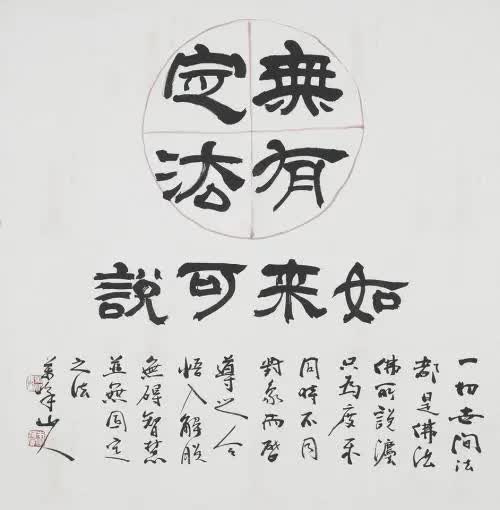 無有
定法
如来可說
一切世間法
都是佛法
佛所說灋
只為度不
同時不同
對象而啓
導之令
悟入解脱
無碍智慧
並無固定
之法
山人